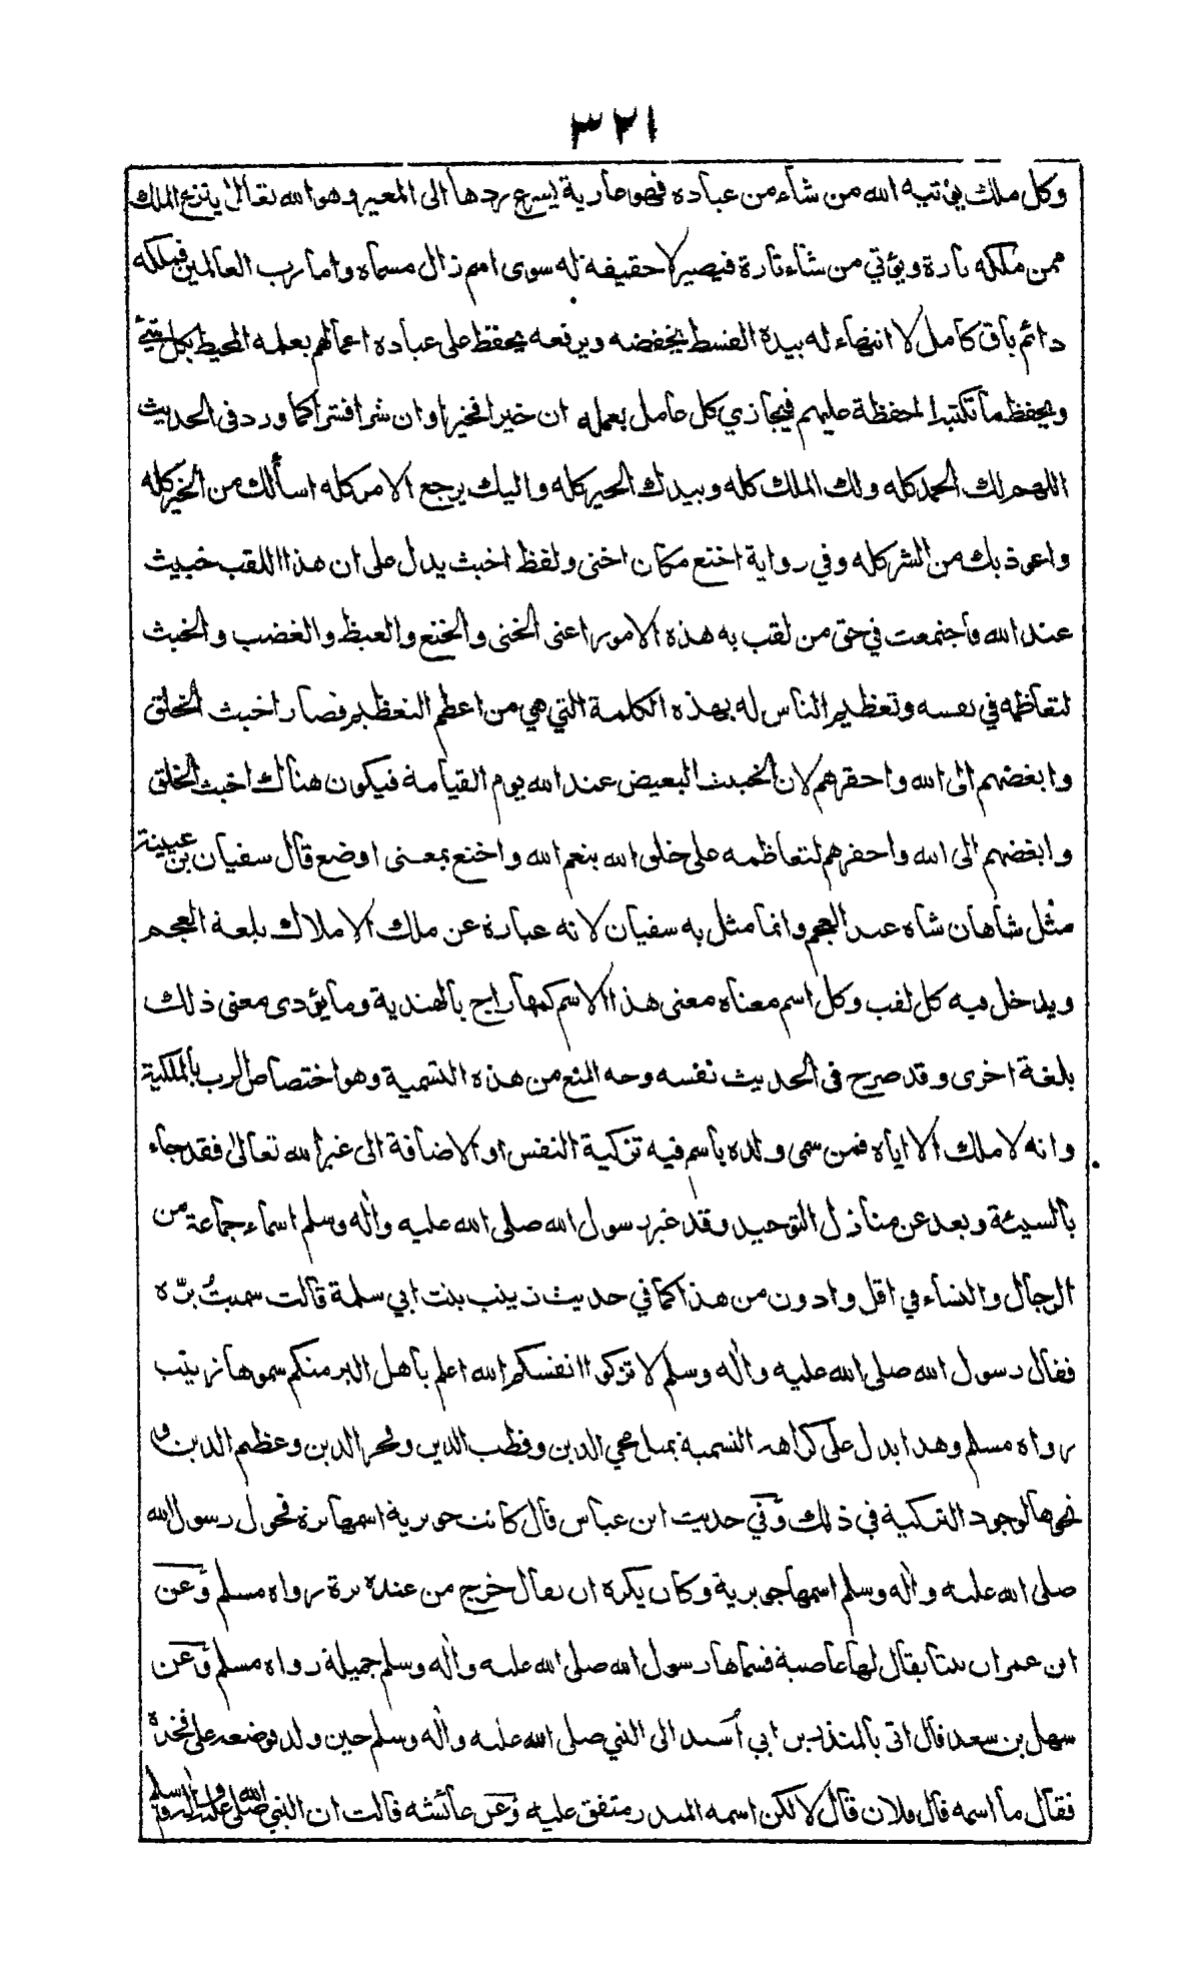 ٣٢١
وكل ملك يؤتيه الله من شاء من عباده فهو عارية يسرع ردها الى المعير وهو الله تعالى ينزع الملك
ممن ملكه تارة ويؤتي من شاء تارة فيصير لا حقيقة له سوى اسم زال مسماه واما رب العالمين فملكه
دائم باق كامل لا انتهاء له بيده القسط يخفضه ويرفعه يحفظ على عباده اعمالهم بعلمه المحيط بكل شيئ
ويحفظ ما تكتبه الحفظة عليهم فيجازي كل عامل بعمله ان خيرا فخيرا وان شرا فشرا كما ورد في الحديث
اللهم لك الحمد كله ولك الملك كله وبيدك الخير كله واليك يرجع الامر كله اسألك من الخير كله
واعوذ بك من الشر كله وفي رواية اخنع مكان اخنى ولفظ اخبث يدل على ان هذا اللقب خبيث
عند الله فاجتمعت في حق من لقب به هذه الامور اعنى الخنى والخنع والغيظ والغضب والخبث
لتعاظمه في نفسه وتعظيم الناس له بهذه الكلمة التي هي من اعظم التعظيم فصار اخبث الخلق
وابغضهم الى الله واحقرهم لان الخبيث البغيض عند الله يوم القيامة فيكون هناك اخبث الخلق
وابغضهم الى الله واحقرهم لتعاظمه على خلق الله بنعم الله واخنع بمعنى اوضع قال سفيان بن عيينة
مثل شاهان شاه عند العجم وانما مثل به سفيان لانه عبارة عن ملك الاملاك بلغة العجم
ويدخل فيه كل لقب وكل اسم معناه معنى هذا الاسم كمهاراج بالهندية وما يؤدى معنى ذلك
بلغة اخرى وقد صرح في الحديث نفسه وجه المنع من هذه التسمية وهو اختصاص الرب بالملكية
وانه لا ملك الا اياه فمن سمى ولده باسم فيه تزكية النفس او الاضافة الى غير الله تعالى فقد جاء
بالسيئة وبعد عن منازل التوحيد وقد غير رسول الله صلى الله عليه واله وسلم اسماء جماعة من
الرجال والنساء في اقل وادون من هذا كما في حديث زينب بنت ابي سلمة قالت سميتُ برّه
فقال رسول الله صلى الله عليه واله وسلم لا تزكوا انفسكم الله اعلم باهل البر منكم سموها زينب
رواه مسلم وهذا يدل على كراهة التسمية بمثل محي الدين وقطب الدين وفخر الدين وعظم الدين و
نحوها لوجود التزكية في ذلك وفي حديث ابن عباس قال كانت جويرية اسمها برة فحول رسول الله
صلى الله عليه واله وسلم اسمها جويرية وكان يكره ان يقال خرج من عنده برة رواه مسلم وعن
ابن عمر ان بنتا يقال لها عاصية فسماها رسول الله صلى الله عليه واله وسلم جميلة رواه مسلم وعن
سهل بن سعد قال اتى بالمنذر بن ابي أسيد الى النبي صلى الله عليه واله وسلم حين ولد فوضعه على فخذه
فقال ما اسمه قال فلان قال لا لكن اسمه المنذر متفق عليه وعن عائشه قالت ان النبي صلى الله عليه واله وسلم